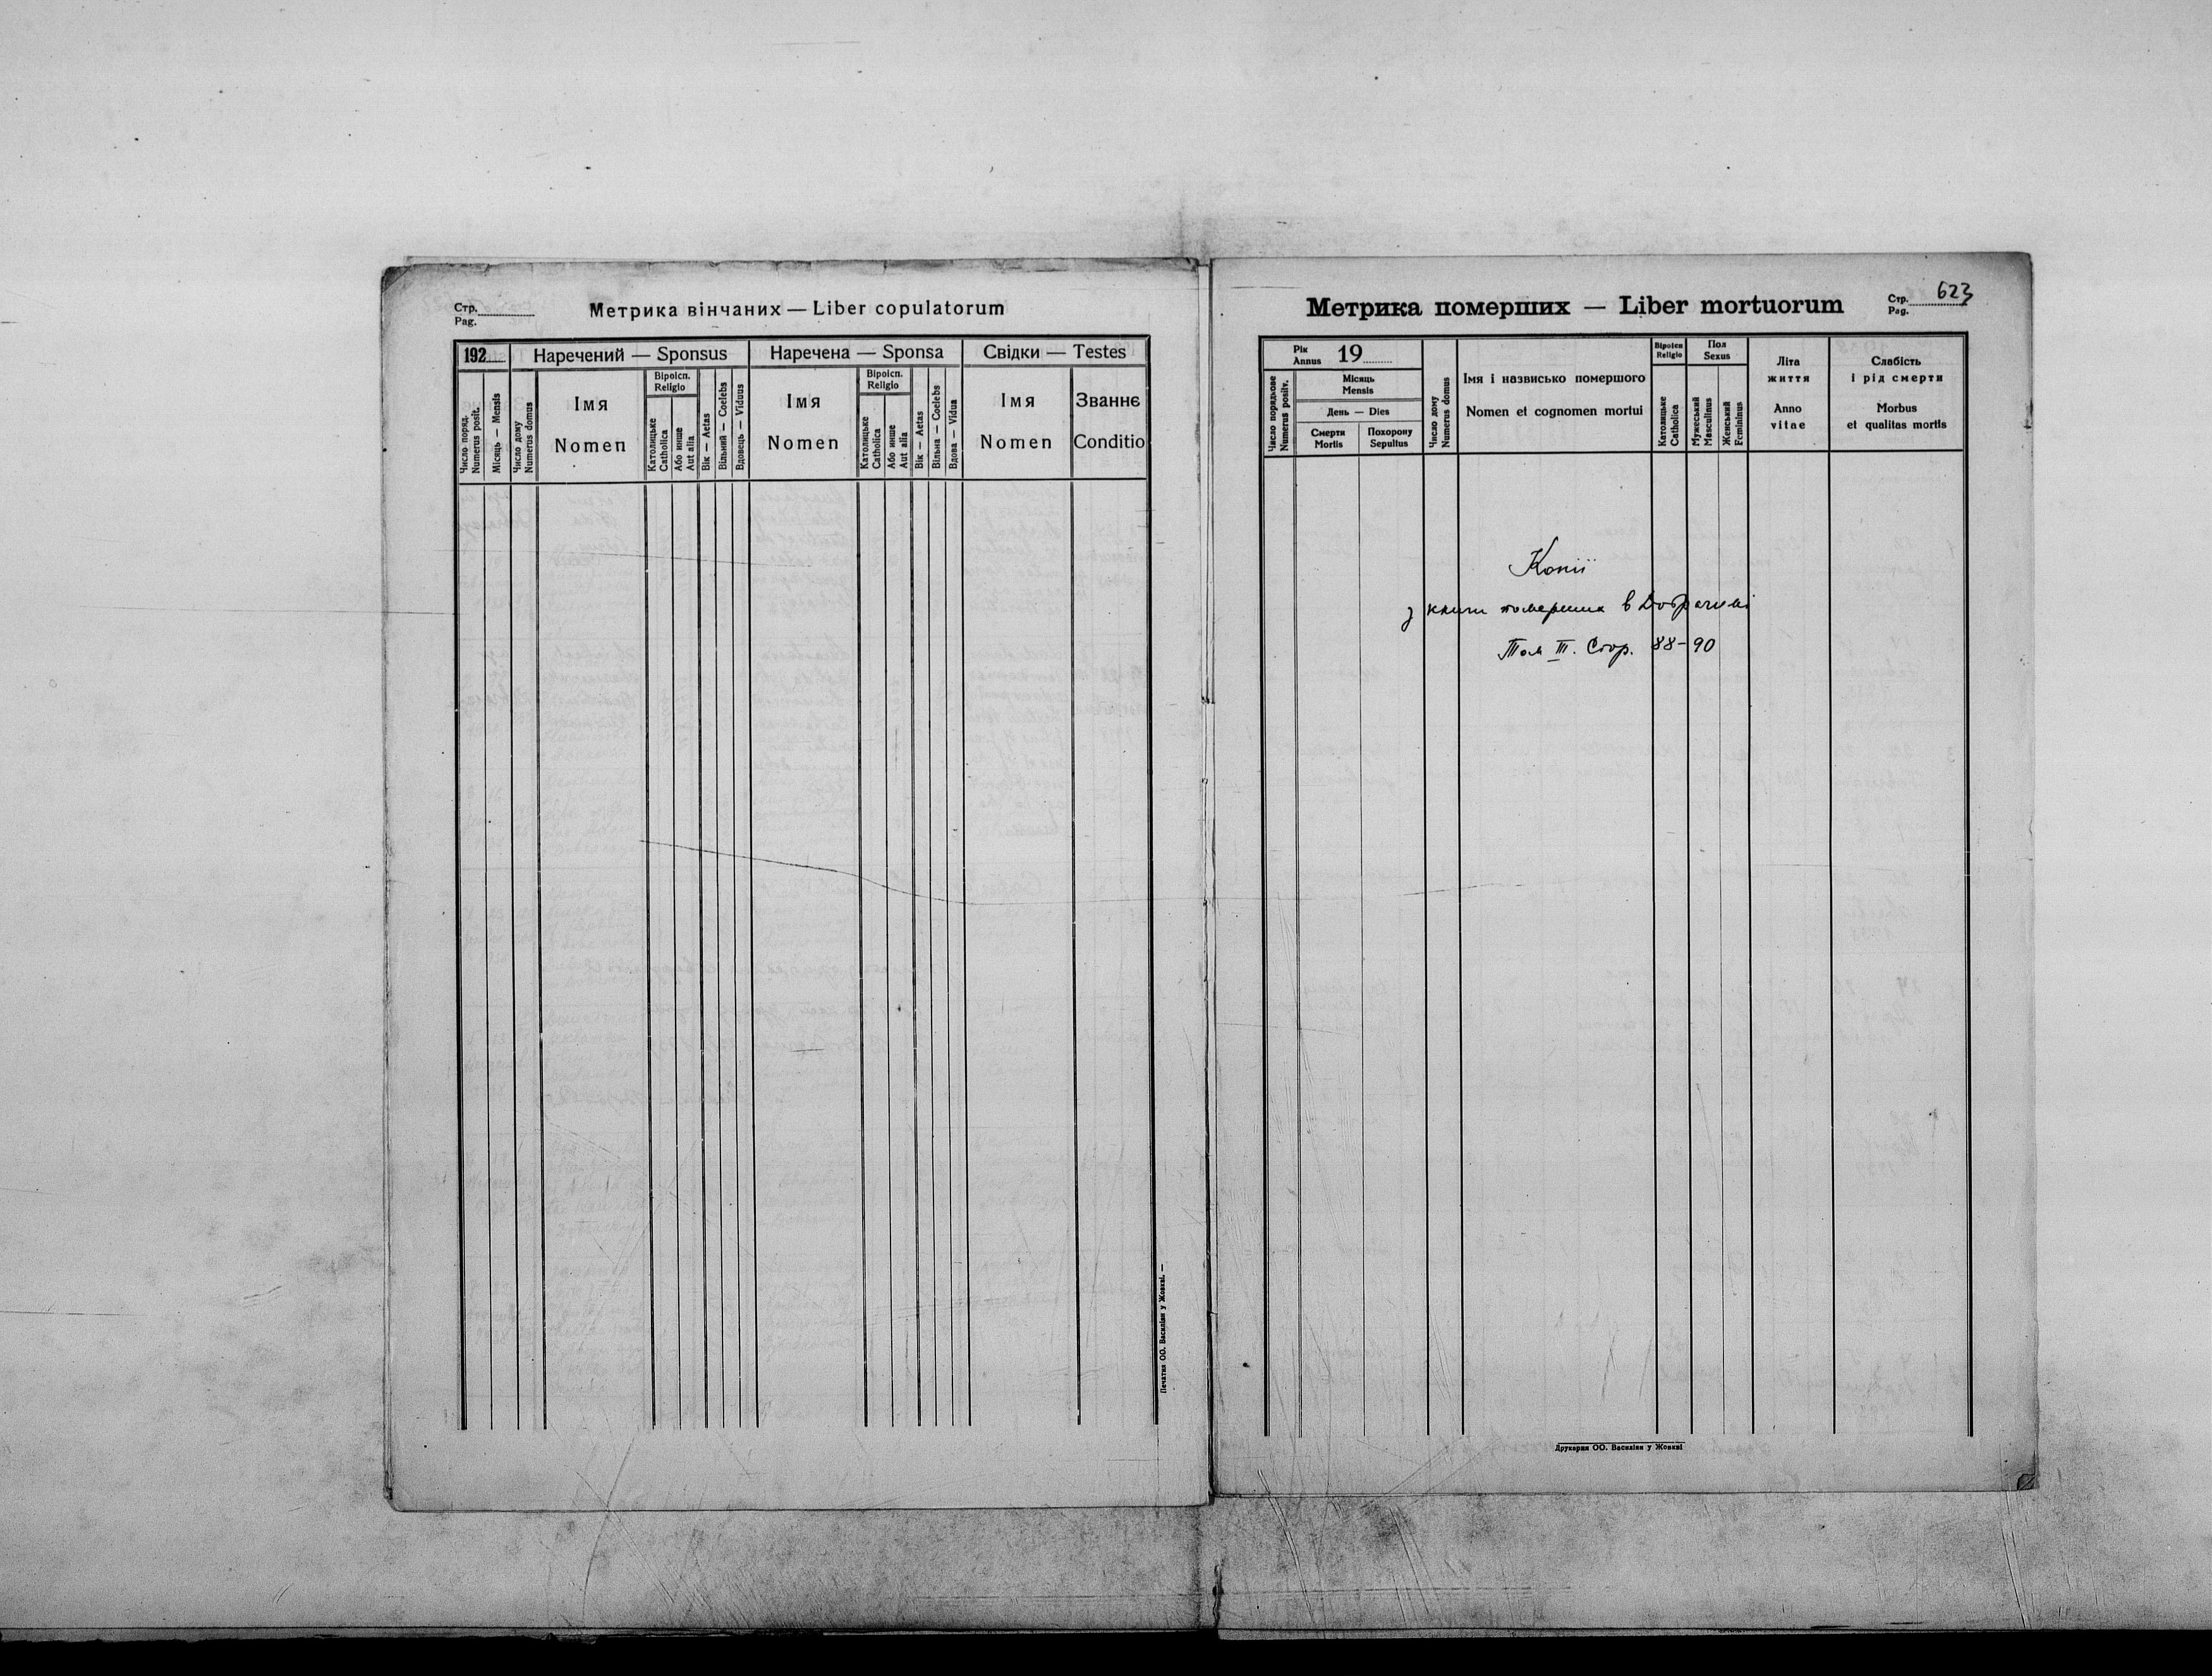 Стр.
Pag.
Метрика вінчаних — Liber copulatorum
192
Наречений — Sponsus
Наречена — Sponsa
Свідки — Testes
Число поряд.
Numerus posit.
Місяць — Mensis
Число дому
Numerus domus
Імя
Nomen
Віроісп.
Religio
Католицьке
Catholica
Або инше
Aut alia
Вік — Aetas
Вільний — Coelebs
Вдовець — Viduus
Імя
Nomen
Віроісп.
Religio
Католицьке
Catholica
Або инше
Aut alia
Вік — Aetas
Вільна — Coelebs
Вдова — Vidua
Імя
Nomen
Званнє
Conditio
Печатня ОО. Василіян у Жовкві. —
Метрика померших — Liber mortuorum
Стр.
Pag.
623
Рік
Annus
19
Число порядкове
Numerus positv.
Місяць
Mensis
День — Dies
Смерти
Mortis
Похорону
Sepultus
Число дому
Numerus domus
Імя і назвисько помершого
Nomen et cognomen mortui
Віроісп
Religio
Католицьке
Catholica
Пол
Sexus
Мужеський
Masculinus
Женський
Femininus
Літа
життя
Anno
vitae
Слабість
і рід смерти
Morbus
et qualitas mortis
Копії
з книги померших в Добрачині
Том III. Стор. 88-90
Друкарня ОО. Василіян у Жовкві